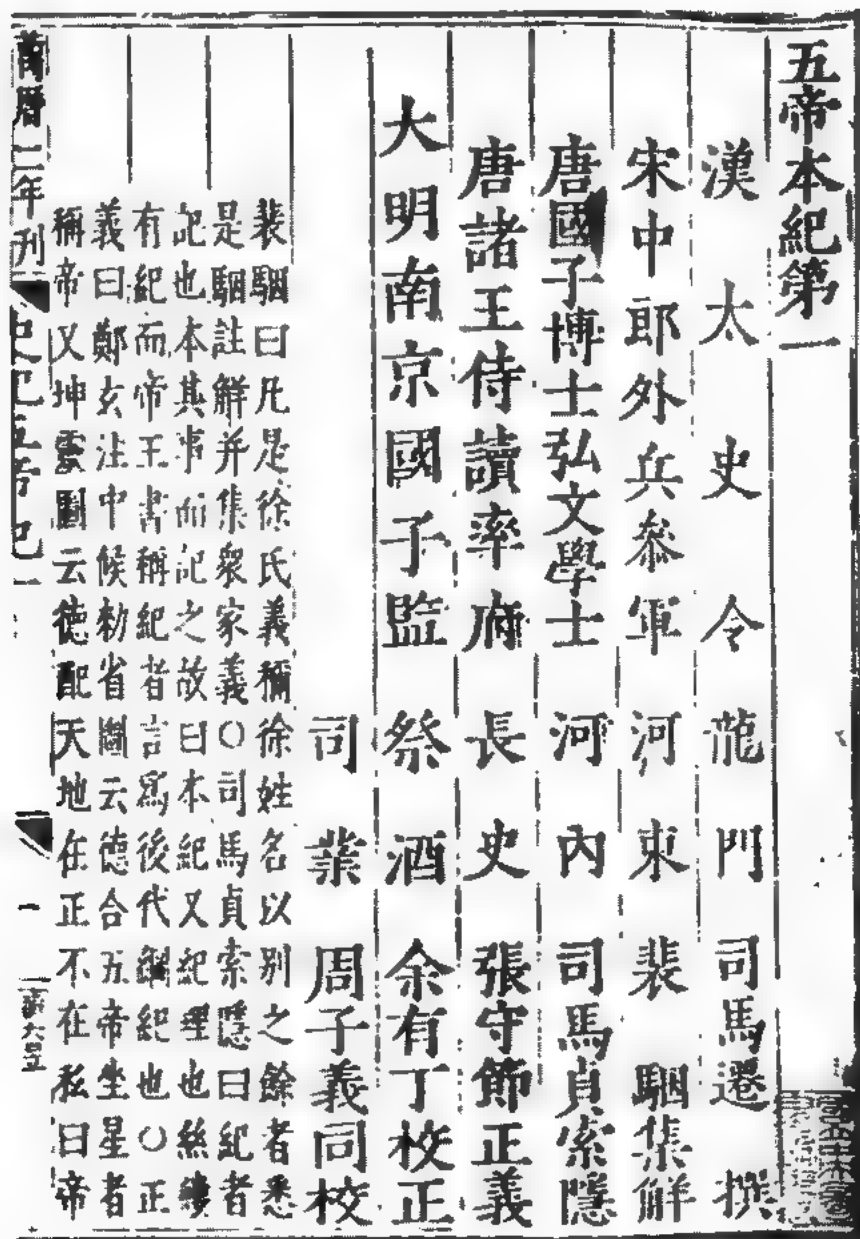 五帝本紀第一
漢太史令龍門司馬遷撰
宋中郎外兵叅軍河東裴駰集解
唐國子博士弘文學士河內司馬貞索隱
唐諸王侍讀率府長史張守節正義
大明南京國子監祭酒余有丁校正
司業周子義同校
裴駰曰凡是徐氏義稱徐姓名以别之餘者悉
是駰註解并集衆家義○司馬貞索隱曰紀者
記也本其事而記之故曰本紀又紀理也絲縷
有紀而帝王書稱紀者言爲後代綱紀也○正
義曰鄭玄注中候勑省圖云德合五帝坐星者
稱帝又坤靈圖云德配天地在正不在私曰帝
萬曆二年刊
史記五帝紀一
一